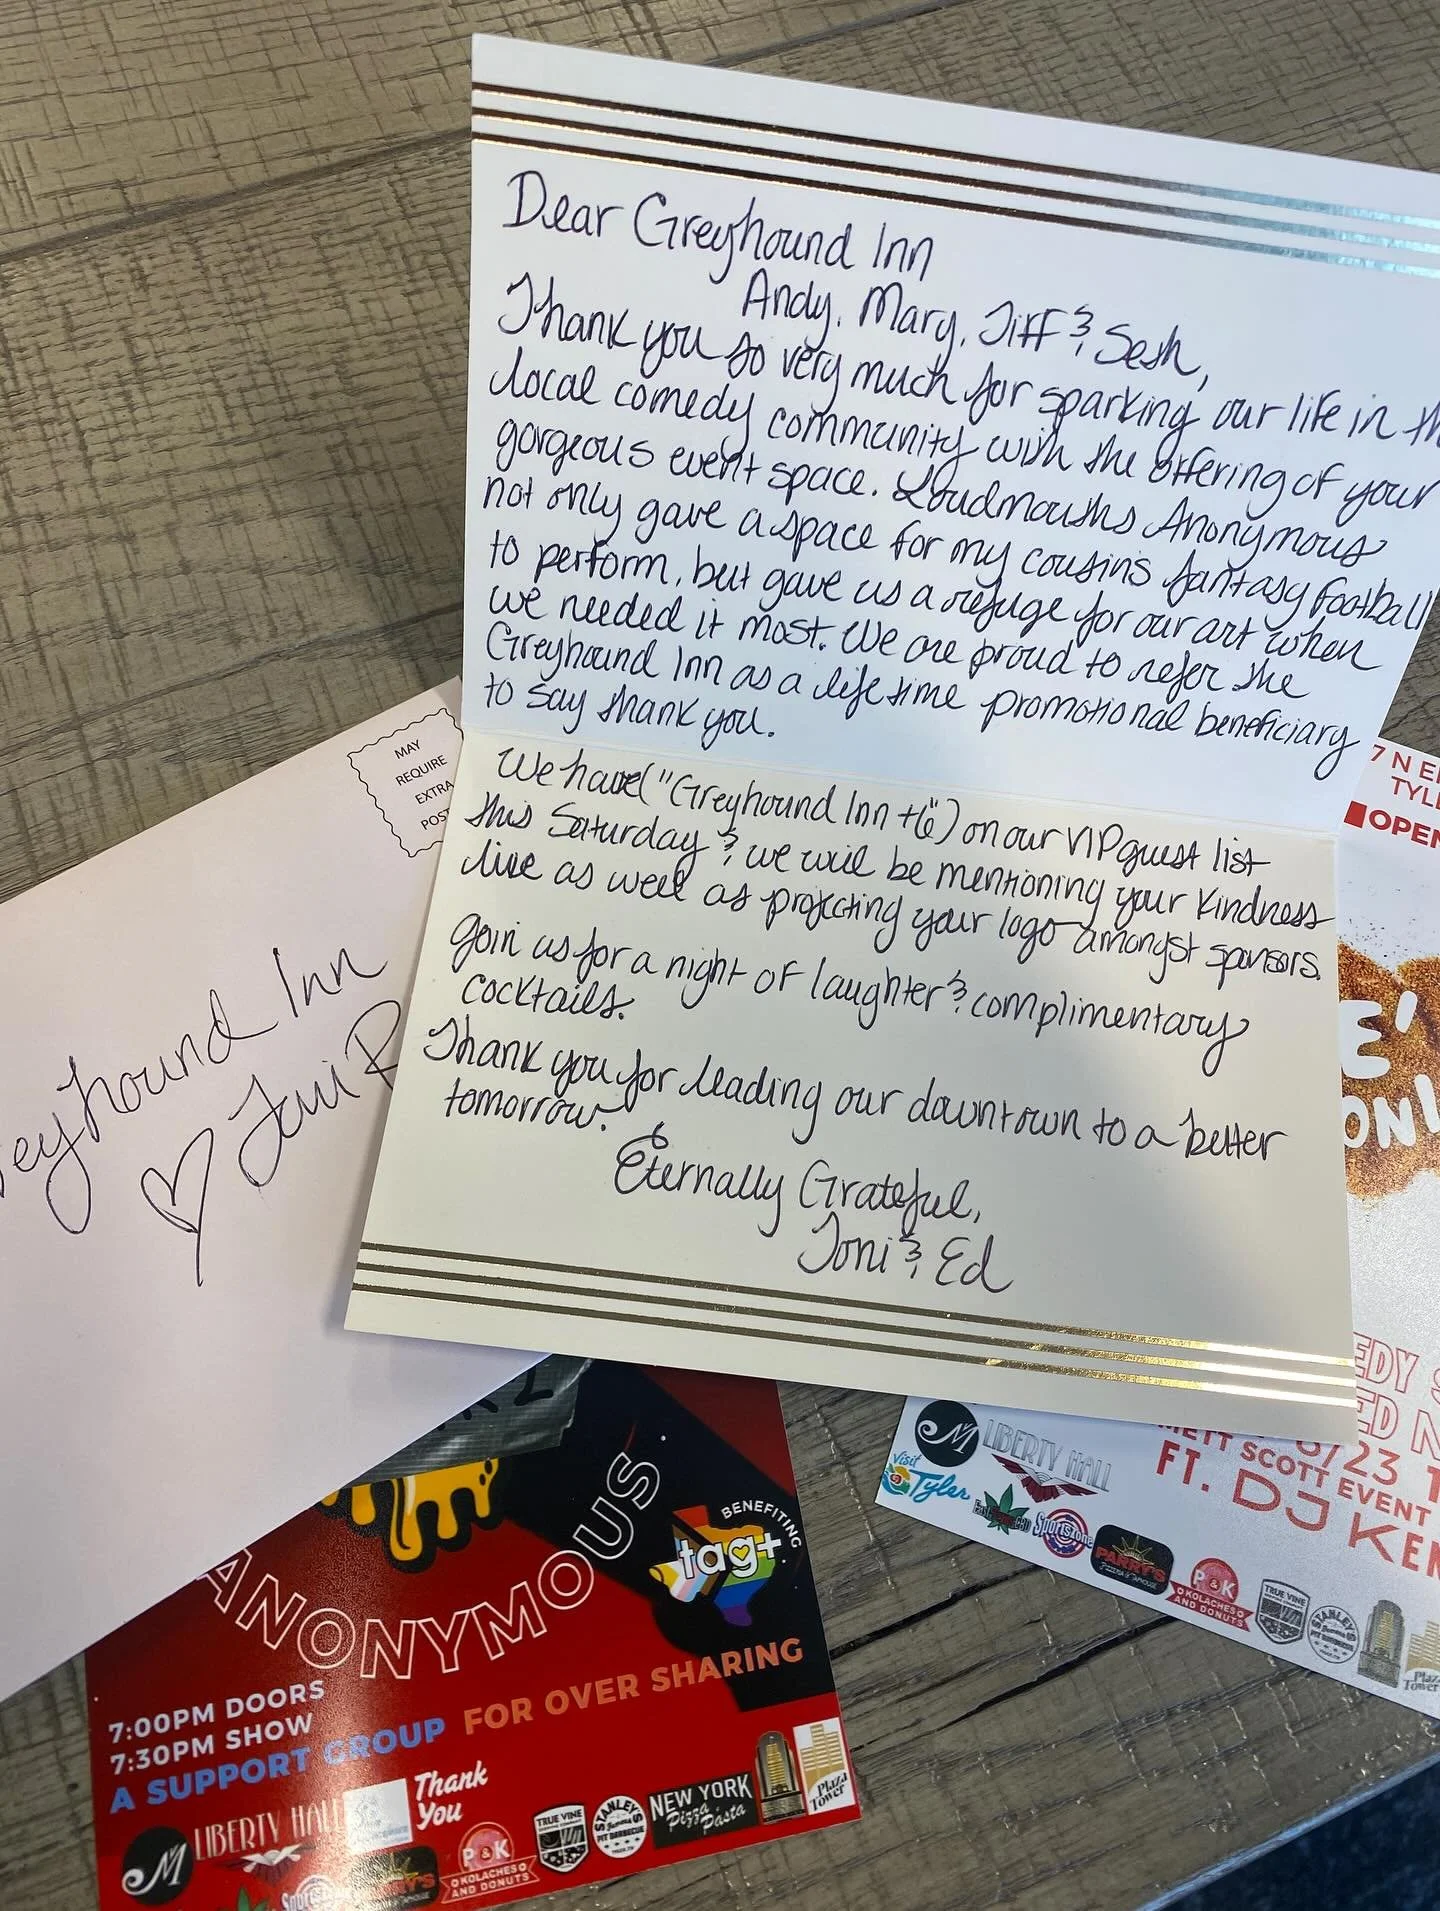 Dear Greyhound Inn
Andy, Mary, Jiff & Sesh,
Thank you so very much for sparking our life in th
local comedy community with the offering of your
gorgeous event space. Loudmouths Anonymous
not only gave a space for my cousin's fantasy football
to perform, but gave us a refuge for our art when
we needed it most. We are proud to refer the
Greyhound Inn as a lifetime promotional beneficiary
to say thank you.
We have ("Greyhound Inn +6") on our VIP guest list
this Saturday & we will be mentioning your kindness
live as well as projecting your logo amongst sponsors.
Join us for a night of laughter & complimentary
cocktails.
Thank you for leading our downtown to a better
tomorrow.
Eternally Grateful,
Toni & Ed
MAY
REQUIRE
EXTRA
POST
eyhound Inn
Toni R
7 N E
TYL
OPEN
E'
ONI
EDY S
ED N
6/23 T
METT SCOTT EVENT
FT. DJ KEN
M LIBERTY HALL
Visit
Tyler
East Texas CBD
SportsZone
PARRY'S
PIZZERIA & TAPHOUSE
P&K
KOLACHES
AND DONUTS
TRUE VINE
STANLEY'S
Famous
PIT BARBECUE
Plaza
Tower
ANONYMOUS
BENEFITING
tag+
7:00PM DOORS
7:30PM SHOW
A SUPPORT GROUP FOR OVER SHARING
M LIBERTY HALL
Thank
You
TRUE VINE
STANLEY'S
Famous
PIT BARBECUE
NEW YORK
Pizza & Pasta
Plaza
Tower
SportsZone
PARRY'S
P&K
KOLACHES
AND DONUTS